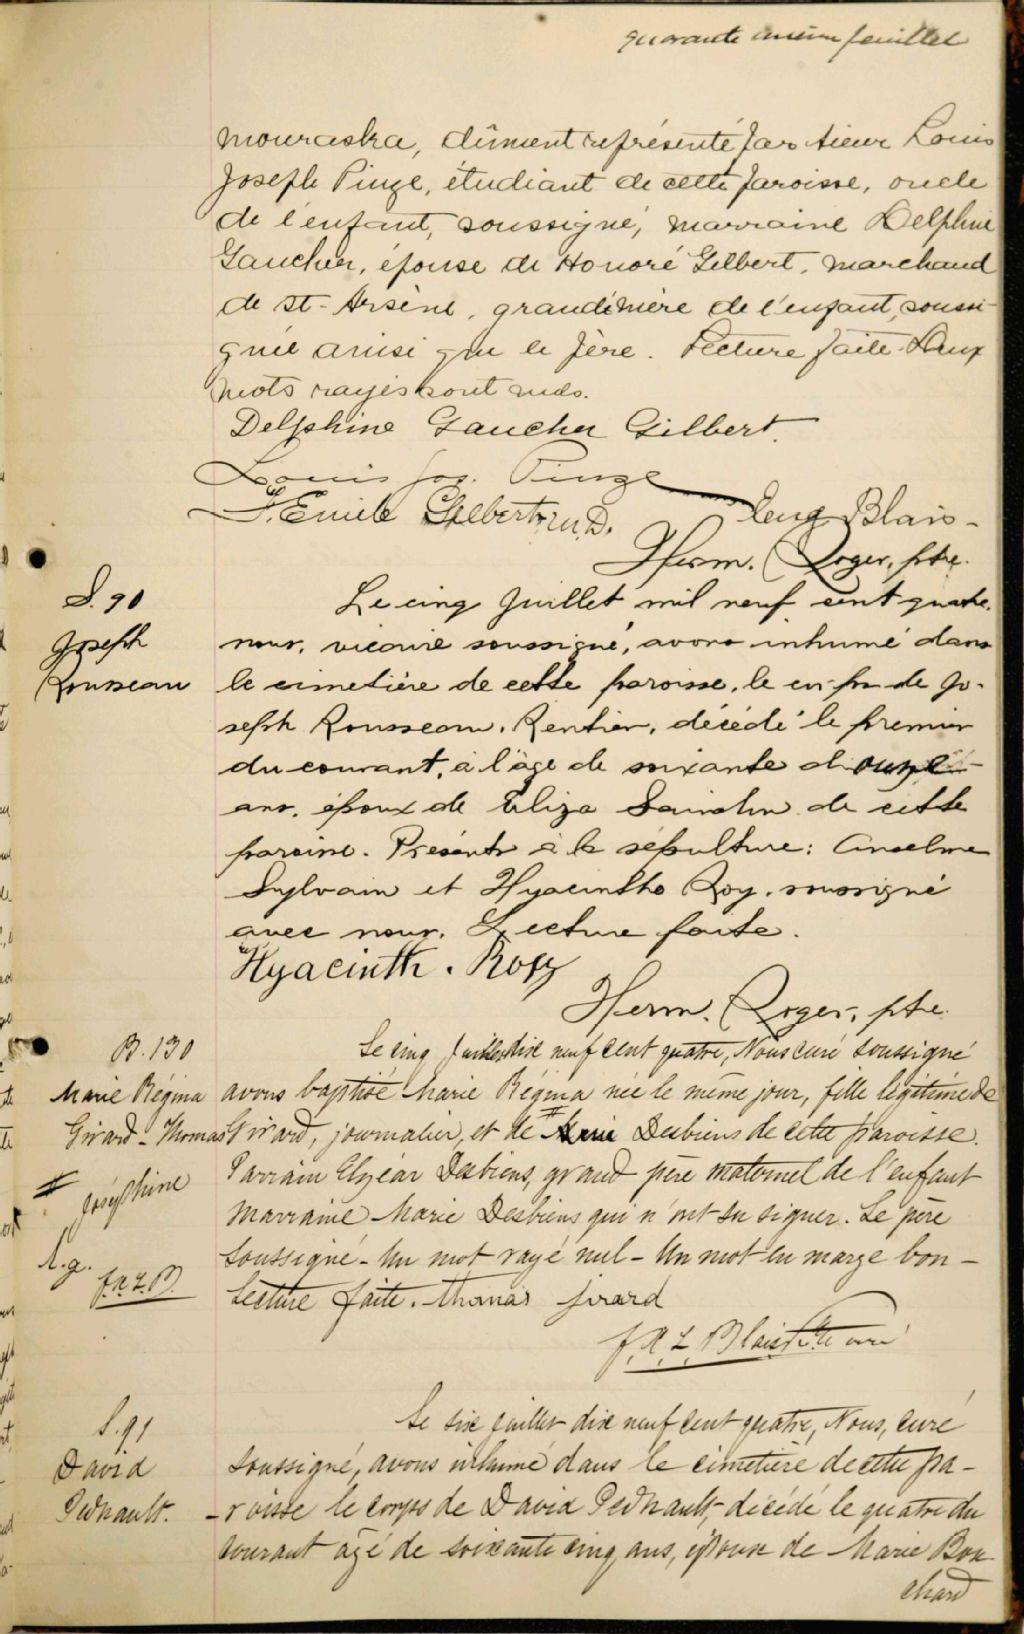 quarante unième feuillet
mouraska, dûment représenté par sieur Louis
Joseph Pinze, étudiant de cette paroisse, oncle
de l'enfant, soussigné, marraine Delphine
Gaucher, épouse de Honoré Gilbert, marchand
de St-Arsène, grand'mère de l'enfant, soussi-
gnée ainsi que le père. Lecture faite. Deux
mots rayés sont nuls.
Delphine Gaucher Gilbert.
Louis Jos. Pinze
J. Emile Gilbert M.D. Blais-
Herm. Roger, ptre.
S. 90
Joseph
Rousseau
Le cinq Juillet mil neuf cent quatre,
nous, vicaire soussigné, avons inhumé dans
le cimetière de cette paroisse, le corps de Jo-
seph Rousseau, Rentier, décédé le premier
du courant, à l'âge de soixante et onze
ans, époux de Eliza de cette
paroisse. Présents à la sépulture: Anselme
Sylvain et Hyacinthe Roy, soussigné
avec nous. Lecture faite.
Hyacinth. Roy
Herm. Roger, ptre.
B. 130
Marie Régina
Girard-
# Joséphine
t.g.
J.A.L.B.
Le cinq Juillet dix neuf cent quatre, Nous curé soussigné
avons baptisé Marie Régina née le même jour, fille légitime de
Thomas Girard, journalier, et de # Desbiens de cette paroisse.
Parrain Elzéar Desbiens, grand père maternel de l'enfant
Marraine Marie Desbiens qui n'ont su signer. Le père
soussigné - Un mot rayé nul - Un mot en marge bon -
Lecture faite. Thomas jirard
J.A.L. Blais Ptre curé
S. 91
David
Pednault.
Le six juillet dix neuf cent quatre, Nous, curé
soussigné, avons inhumé dans le cimetière de cette pa-
-roisse le corps de David Pednault, décédé le quatre du
courant âgé de soixante cinq ans, époux de Marie Bou
chard